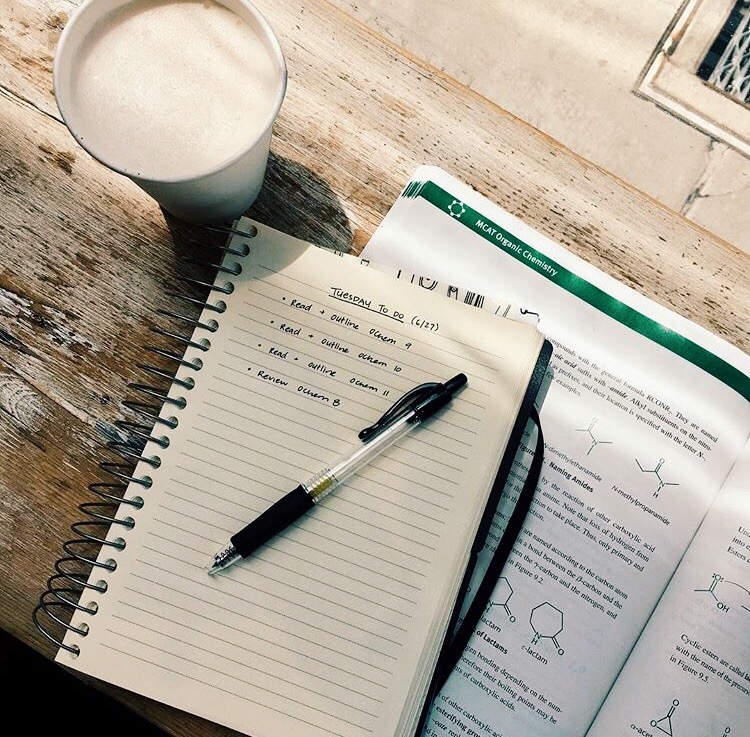 TUESDAY TO DO (6/27)
• Read + outline Ochem 9
• Read + outline Ochem 10
• Read + outline Ochem 11
• Review Ochem 8
MCAT Organic Chemistry
compounds with the general formula RCONR. They are named
oic acid suffix with -amide. Alkyl substituents on the nitro-
as prefixes, and their location is specified with the letter N-.
few examples.
O
N
O
N
H
N-dimethylethanamide
N-methylpropanamide
Figure Naming Amides
by the reaction of other carboxylic acid
amine. Note that loss of hydrogen from
for the reaction to take place. Thus, only primary and
reaction.
are named according to the carbon atom
in a bond between the β-carbon and the
between the γ-carbon and the nitrogen, and
in Figure 9.2.
N
H
O
lactam
ε-lactam
of Lactams
gen bonding depending on the num-
therefore their boiling points may be
nts of carboxylic acids.
of other carboxylic ac
esterifying
into
Esters
OH
Cyclic esters are called
with the name of the
in Figure 9.5.
O